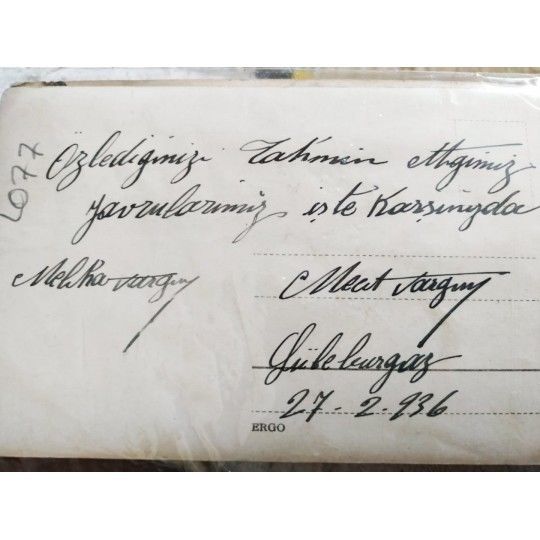 Özlediginizi Tahmin ettigimiz
yavrularımız işte karşınızda
Melika Vargın
Mecit Vargın
Lüleburgaz
27-2-936
ERGO
4077